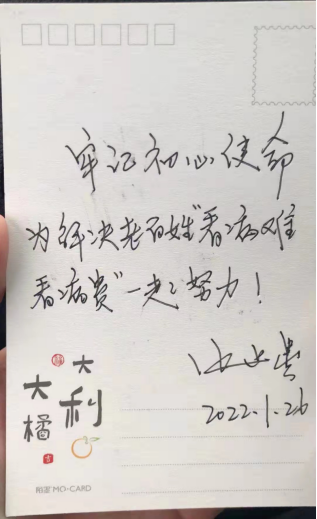 牢记初心使命
为解决老百姓"看病难
看病贵"一起努力!
2022.1.26
大利
大橘
MO-CARD